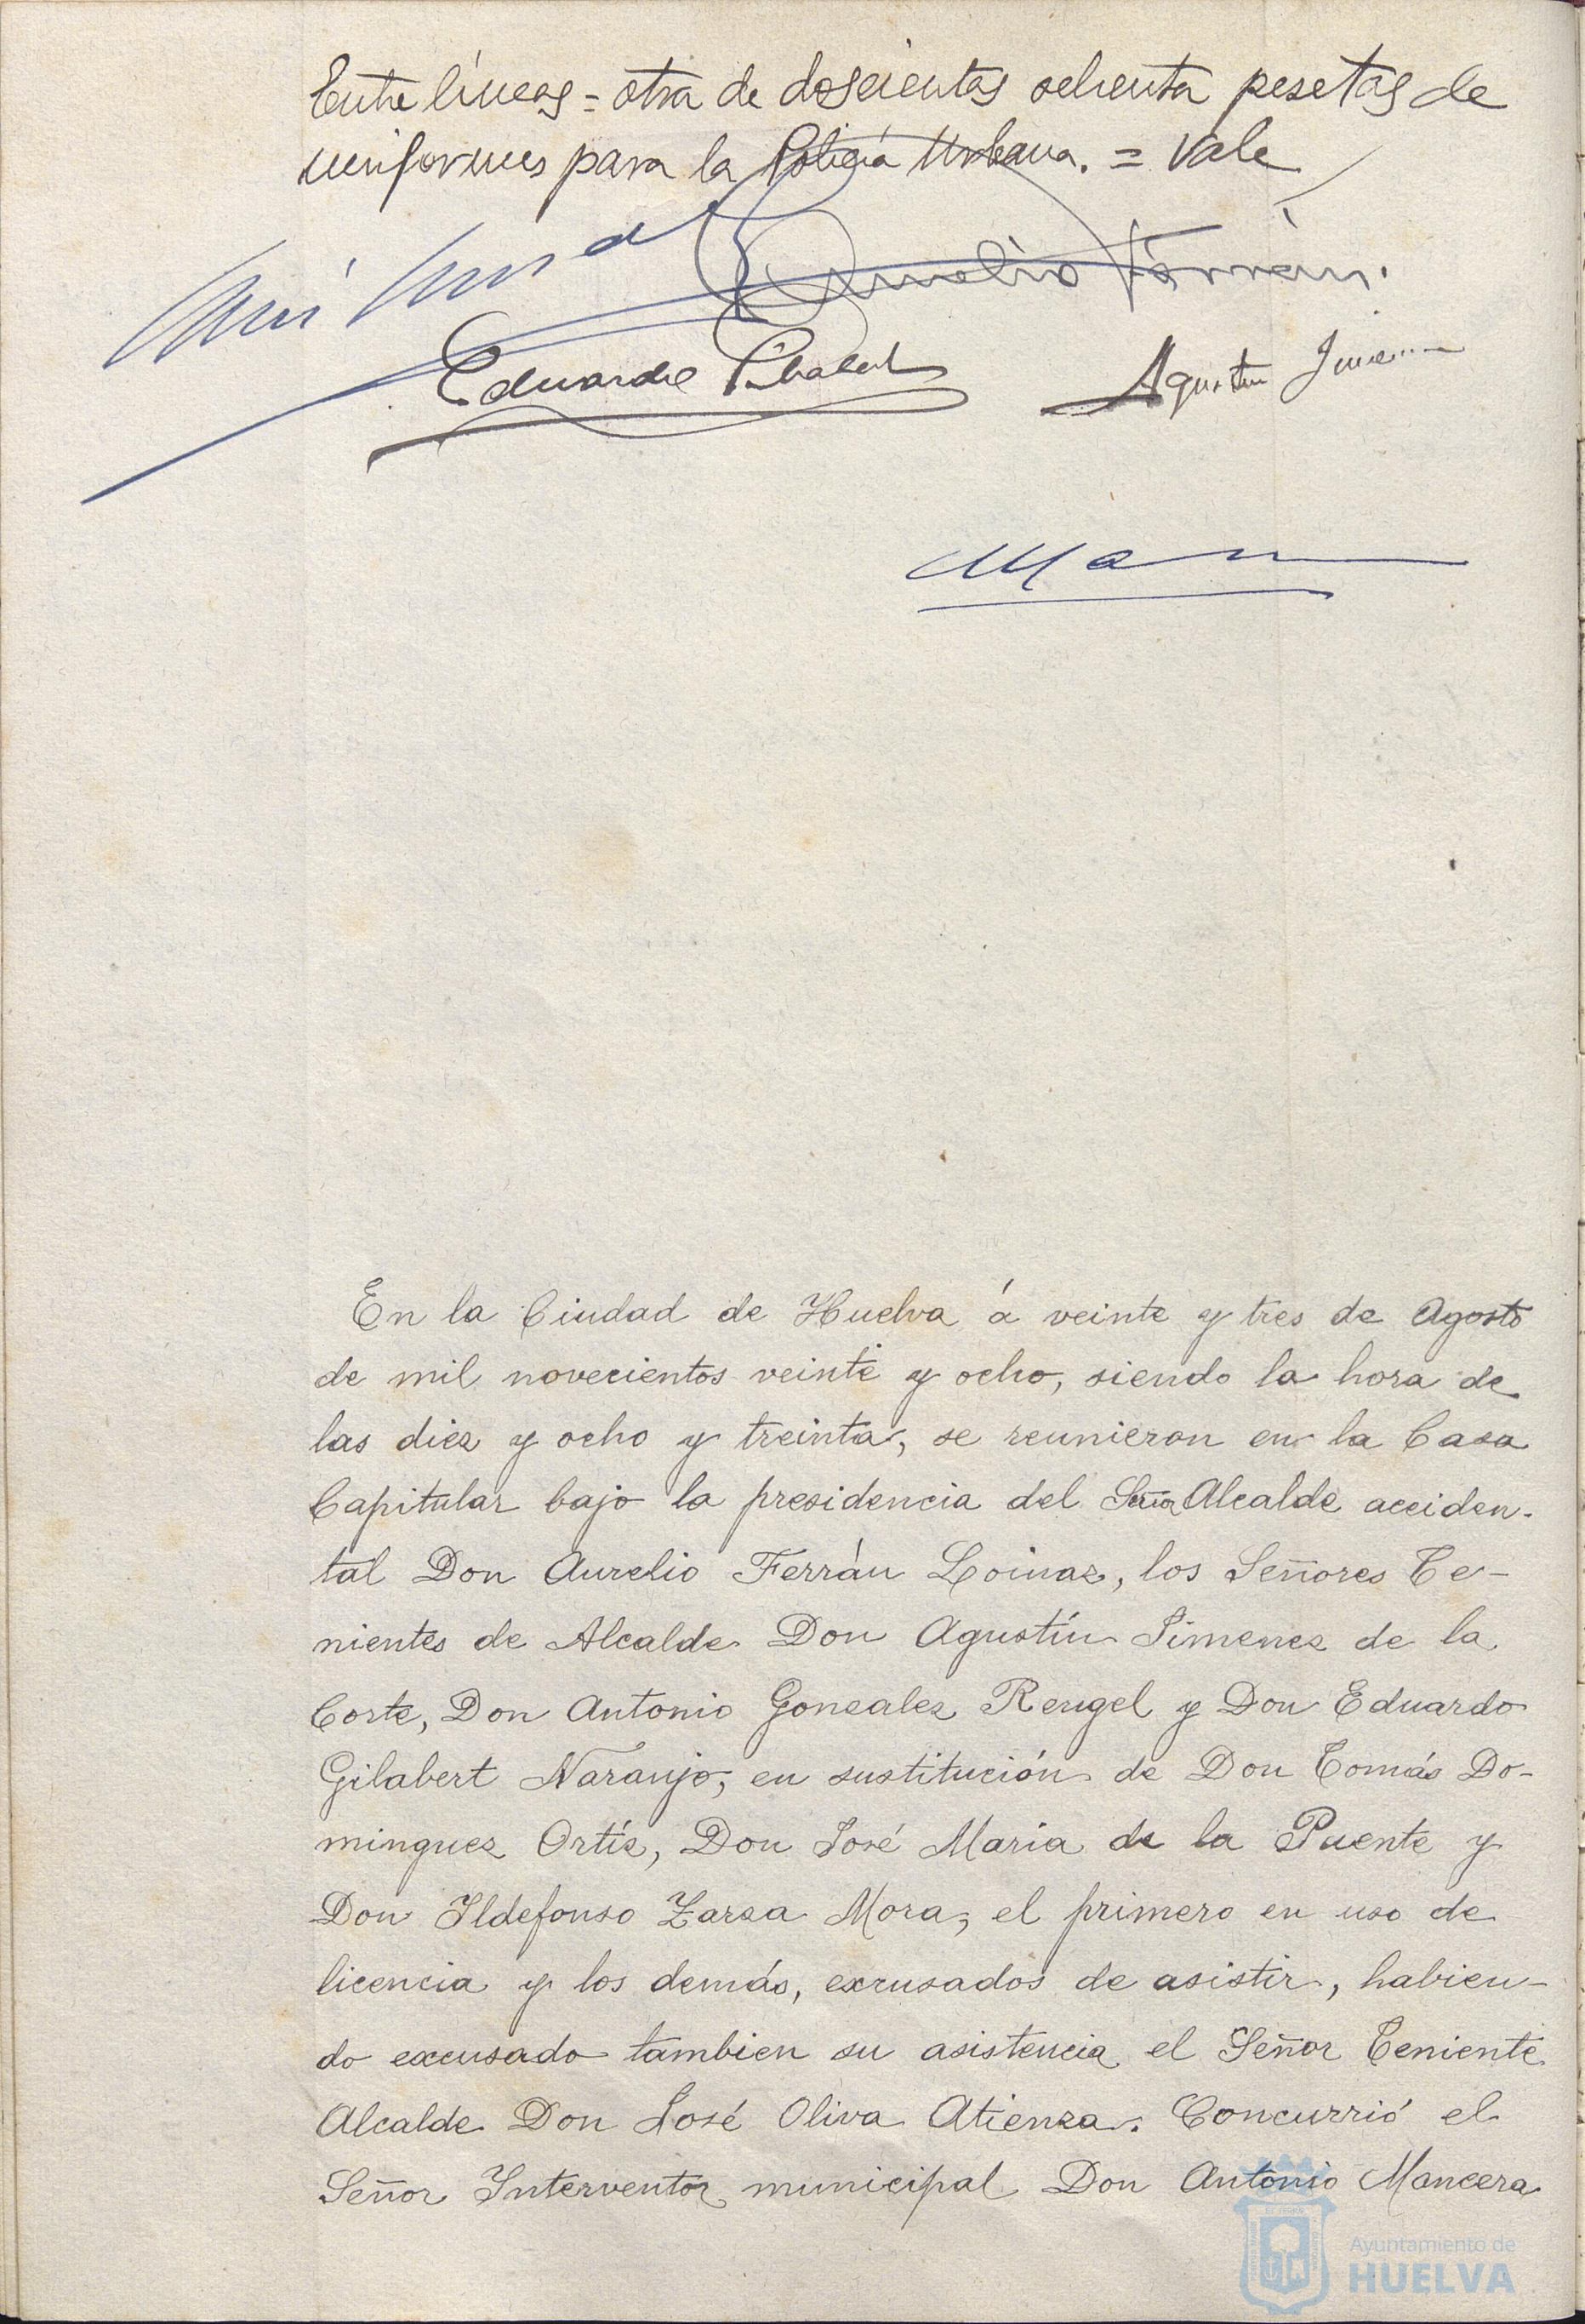 Entre líneas = otra de doscientas ochenta pesetas de
uniformes para la Policía Urbana. = Vale
Aurelio Ferrán.
Eduardo Gilabert
Agustin Jimenez
En la Ciudad de Huelva á veinte y tres de Agosto
de mil novecientos veinte y ocho, siendo la hora de
las diez y ocho y treinta, se reunieron en la Casa
Capitular bajo la presidencia del Señor Alcalde acciden-
tal Don Aurelio Ferrán Loinaz, los Señores Te-
nientes de Alcalde Don Agustín Jimenez de la
Corte, Don Antonio Gonzalez Rengel y Don Eduardo
Gilabert Naranjo, en sustitución de Don Tomás Do-
minguez Ortíz, Don José Maria de la Puente y
Don Ildefonso Zarza Mora, el primero en uso de
licencia y los demás, excusados de asistir, habien-
do excusado tambien su asistencia el Señor Teniente
Alcalde Don José Oliva Atienza. Concurrió el
Señor Interventor municipal Don Antonio Mancera
Ayuntamiento de
HUELVA